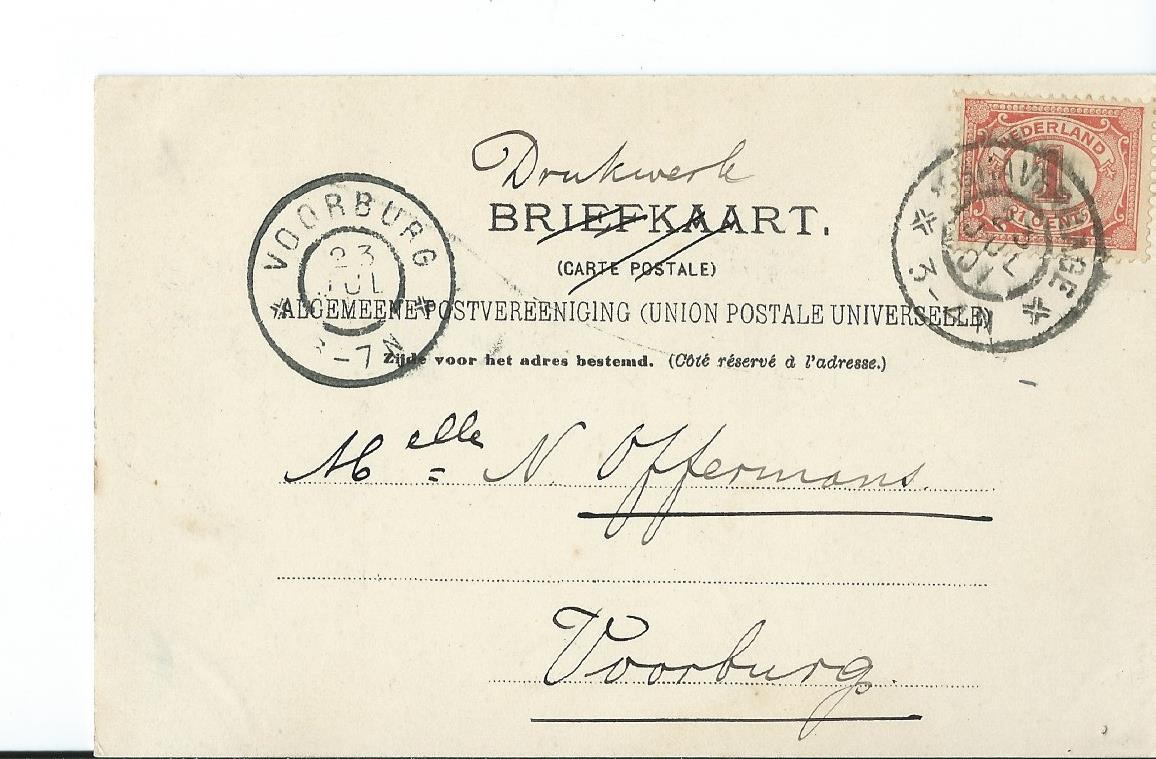 Drukwerk
BRIEFKAART.
(CARTE POSTALE)
ALGEMEENE POSTVEREENIGING (UNION POSTALE UNIVERSELLE)
Zijde voor het adres bestemd. (Côté réservé à l'adresse.)
Melle N Offermans.
Voorburg.
VOORBURG
23
JUL
-7 N
NEDERLAND
1
CENT
3-